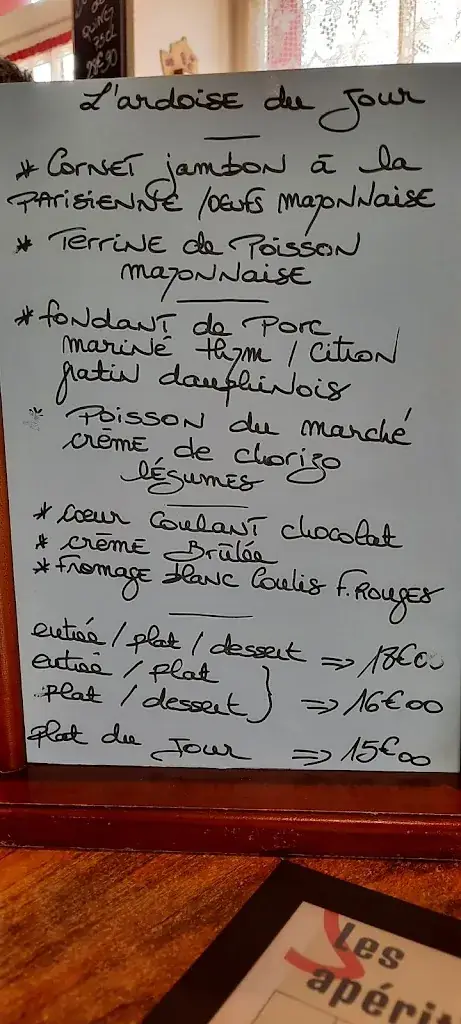 QUINCY
75CL
28€90
L'ardoise du Jour
* Cornet jambon à la
Parisienne / oeufs mayonnaise
* Terrine de Poisson
mayonnaise
* fondant de Porc
mariné thym / citron
gratin dauphinois
* Poisson du marché
crème de chorizo
légumes
* coeur Coulant chocolat
* crème Brûlée
* fromage blanc Coulis F.Rouges
entrée / plat / dessert => 18€00
entrée / plat
plat / dessert } => 16€00
plat du Jour => 15€00
Les
apérit